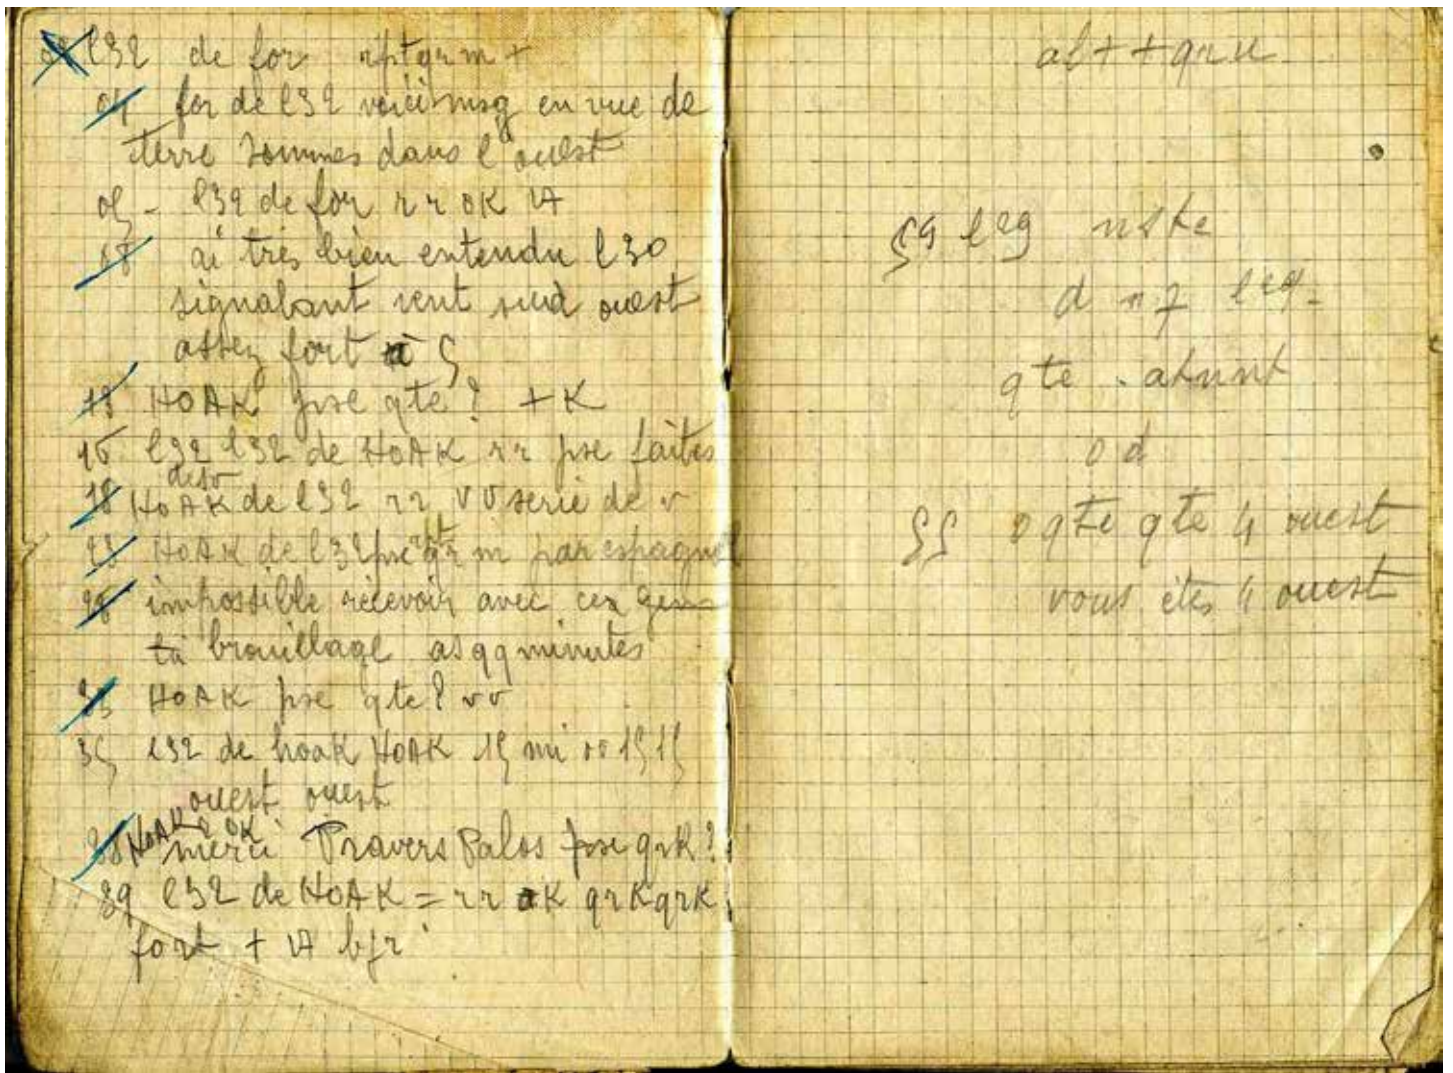 l32 de for rptqrm +
04 for de l32 voici msg en vue de
terre sommes dans l'ouest
05 - l32 de for rr OK VA
08 ai très bien entendu l30
signalant vent sud ouest
assez fort à 5
13 HOAK pse qte? + K
15 l32 l32 de HOAK rr pse faites
18 HOAK de l32 rr vv serie de v
23 HOAK de l32 pse m par espagnol
impossible recevoir avec ces
brouillage as qq minutes
HOAK pse qte? vv
35 l32 de hoak HOAK 15 mi 15 15
ouest ouest
38 HOAK OK
merci Travers Palos pse qrk?
39 l32 de HOAK = rr OK qrk qrk
fort + VA
ab + + qru
59 nste
d n7
qte . atnnt
od
55 o qte qte 4 ouest
vous êtes 4 ouest